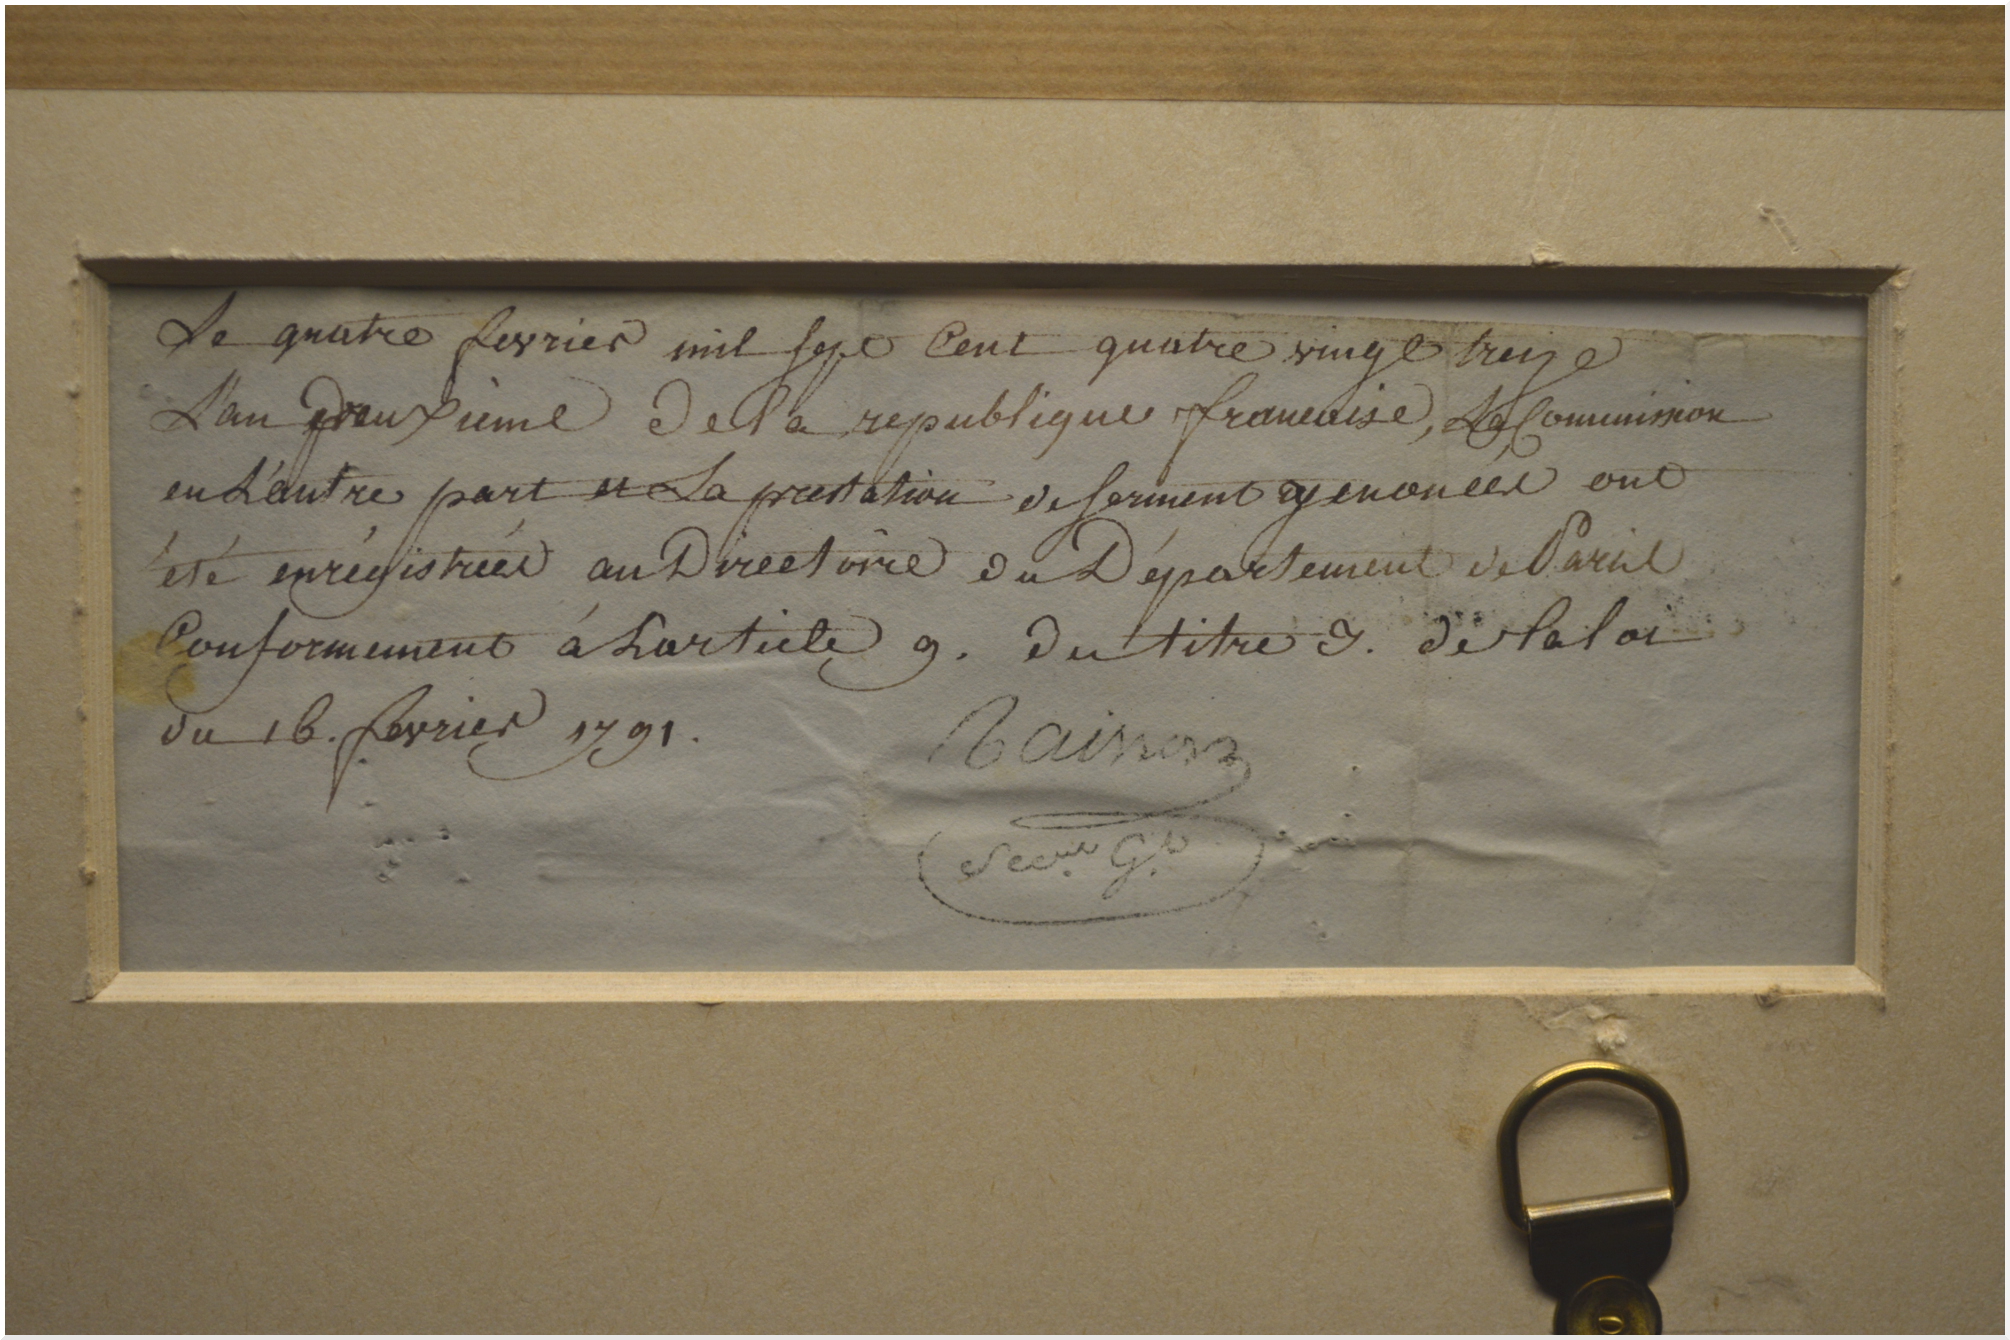 Le quatre fevrier mil sept Cent quatre vingt treize
L'an deuxieme de la republique francaise, La Commission
en L'autre part et La prestation de serment y enoncées ont
été enrégistrées au Directoire du Département de Paris
Conformement à L'article 9. du titre 3. de la loi
du 16. fevrier 1791.
Raisson
Secre. Gl.